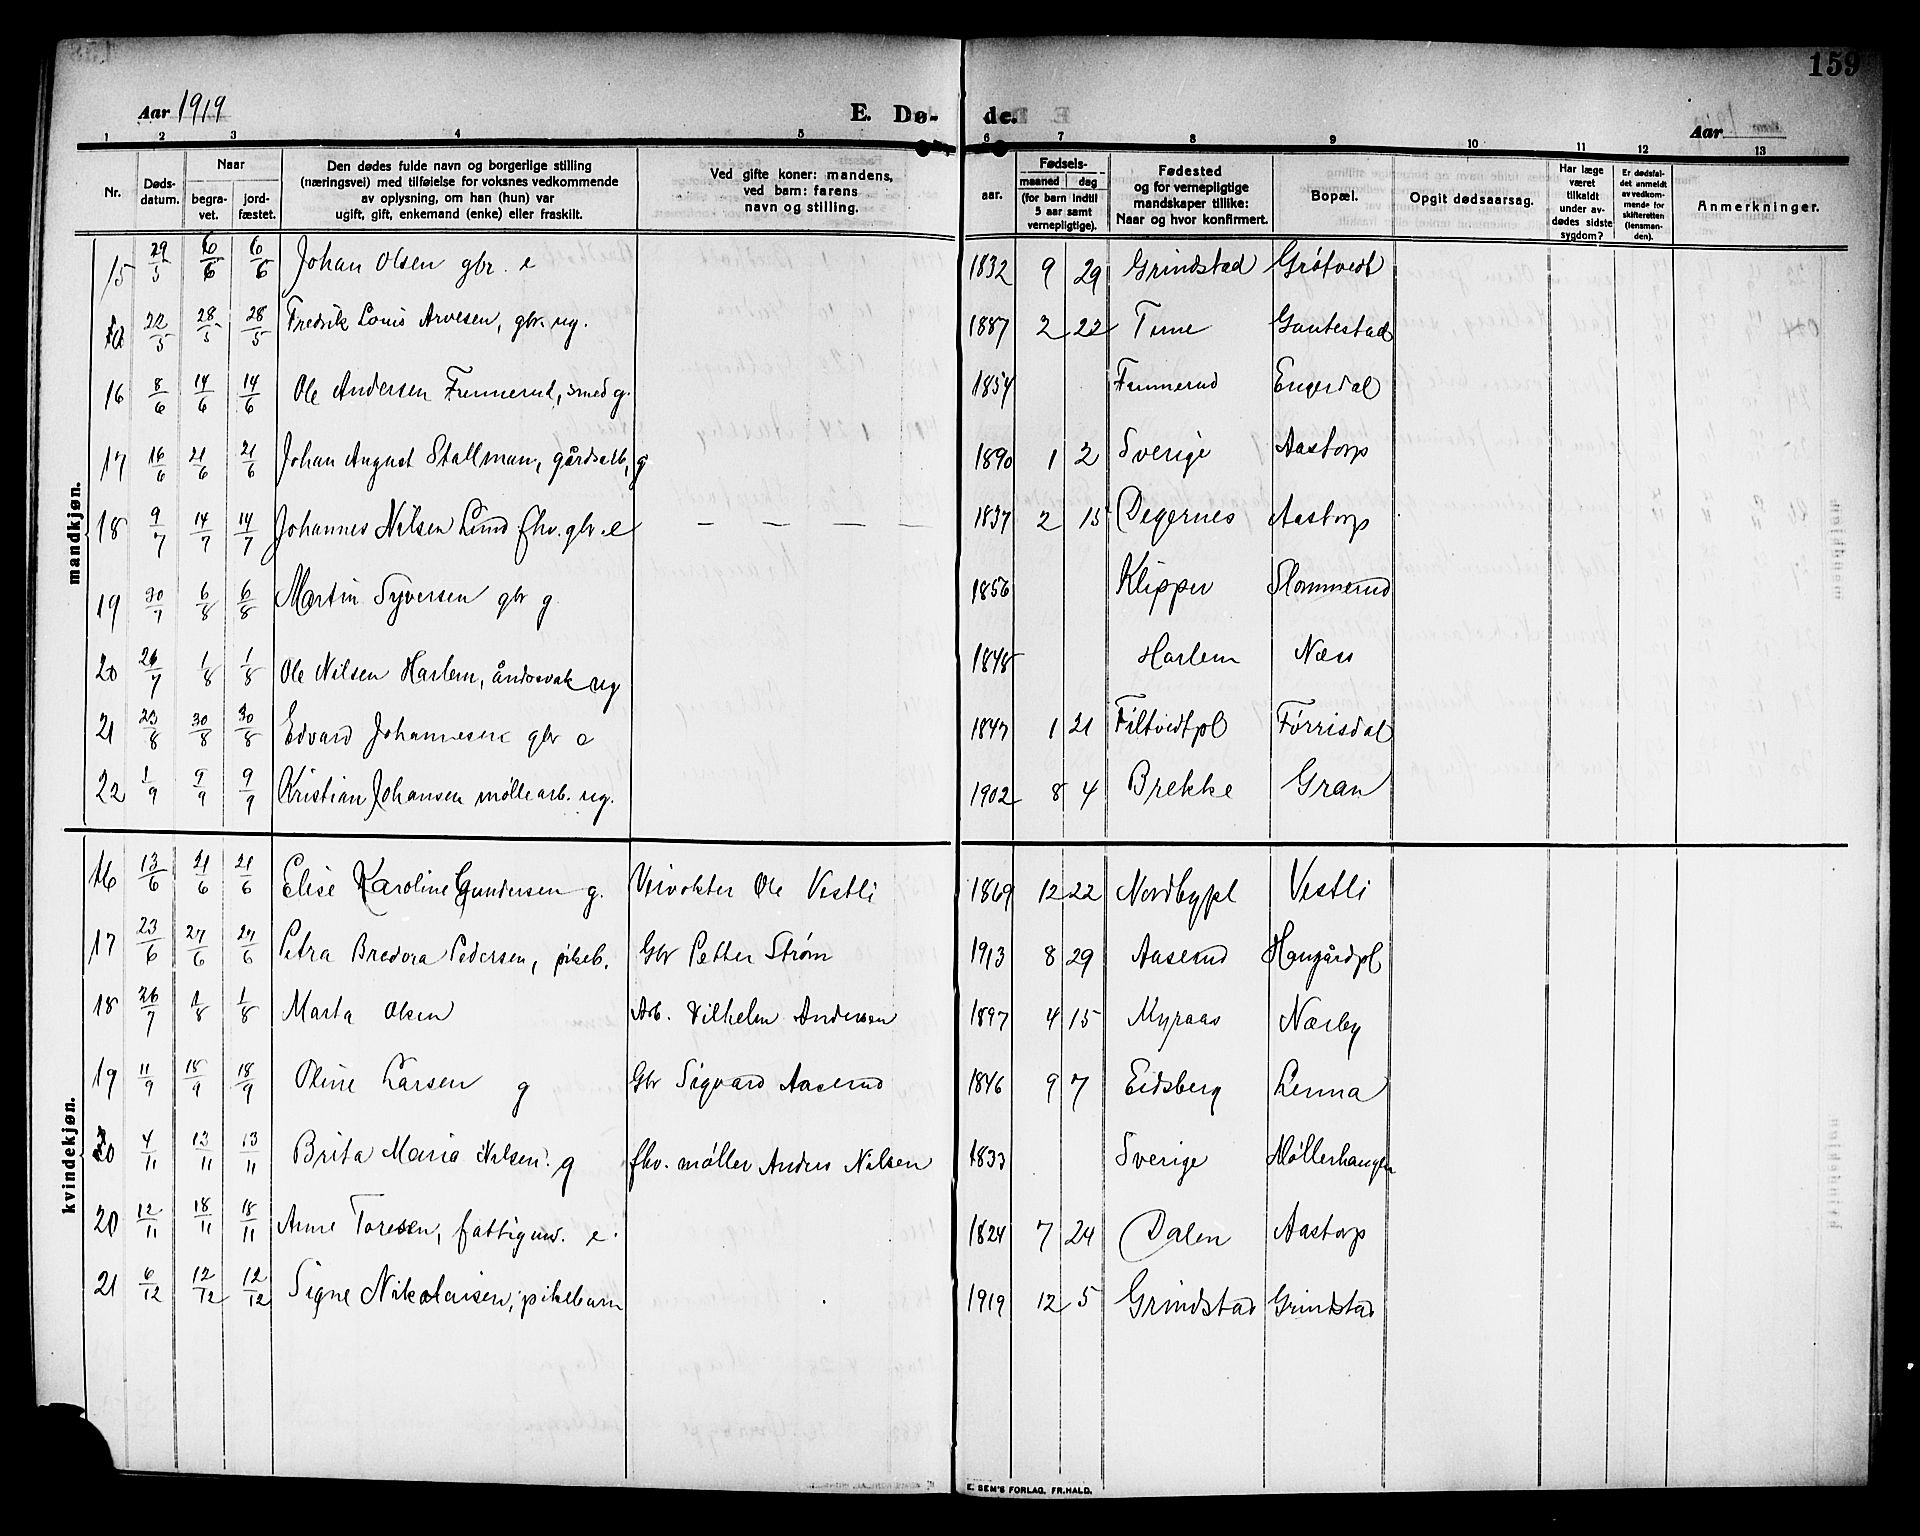 159
Aar 1919 E. Dø- de. Aar
1 2 3 4 5 6 7 8 9 10 11 12 13
Nr. Døds-datum. Naar begra-vet. jord-fæstet. Den dødes fulde navn og borgerlige stilling (næringsvei) med tilføielse for voksnes vedkommende av oplysning, om han (hun) var ugift, gift, enkemand (enke) eller fraskilt. Ved gifte koner: mandens, ved barn: farens navn og stilling. aar. Fødsels- maaned dag (for barn indtil 5 aar samt vernepligtige). Fødested og for vernepligtige mandskaper tillike: Naar og hvor konfirmert. Bopæl. Opgit dødsaarsag. Har læge været tilkaldt under av-dødes sidste sygdom? Er dødsfal-det anmeldt av vedkom-mende for skifteretten (lensman-den). Anmerkninger.
mandkjøn.
15 29/5 6/6 6/6 Johan Olsen gbr. e 1832 9 29 Grindstad Grøtvedt
22/5 28/5 28/5 Fredrik Louis Arvesen, gbr. ug. 1887 2 22 Tune Gautestad
16 8/6 14/6 14/6 Ole Andersen Funnerud, smed g. 1854 Funnerud Engerdal
17 16/6 21/6 21/6 Johan August Stallman, gårdsarb, g 1890 1 2 Sverige Aastorp
18 9/7 14/7 14/7 Johannes Nilsen Lund fhv. gbr. e — — — — 1837 2 15 Degernes Aastorp
19 30/7 6/8 6/8 Martin Syversen gbr g 1856 Klipper Slommerud
20 26/7 1/8 1/8 Ole Nilsen Harlem, åndssvak ug 1848 Harlem Næss
21 23/8 30/8 30/8 Edvard Johannesen gbr e 1847 1 21 Filtvedtpl Førrisdal
22 1/9 9/9 9/9 Kristian Johansen møllearb. ug. 1902 8 4 Brekke Gran
kvindekjøn.
16 13/6 21/6 21/6 Elise Karoline Gundersen g. Veivokter Ole Vestli 1869 12 22 Nordbypl Vestli
17 23/6 27/6 27/6 Petra Bredora Pedersen, pikeb. Gbr Petter Strøm 1913 8 29 Aaserud Haugårdpl
18 26/7 1/8 1/8 Marta Olsen Arb. Vilhelm Andersen 1897 4 15 Myraas Nærby
19 11/9 18/9 18/9 Oline Larsen g Gbr Sigvard Aaserud 1846 9 7 Eidsberg Lerma
20 4/11 13/11 13/11 Brita Maria Nilsen. g fhv. møller Anders Nilsen 1833 Sverige Møllerhaugen
20 12/11 18/11 18/11 Anne Toresen, fattigund. e. 1824 7 24 Dalen Aastorp
21 6/12 12/12 12/12 Signe Nikolaisen, pikebarn 1919 12 5 Grindstad Grindstad
E. SEM'S FORLAG, FR.HALD.